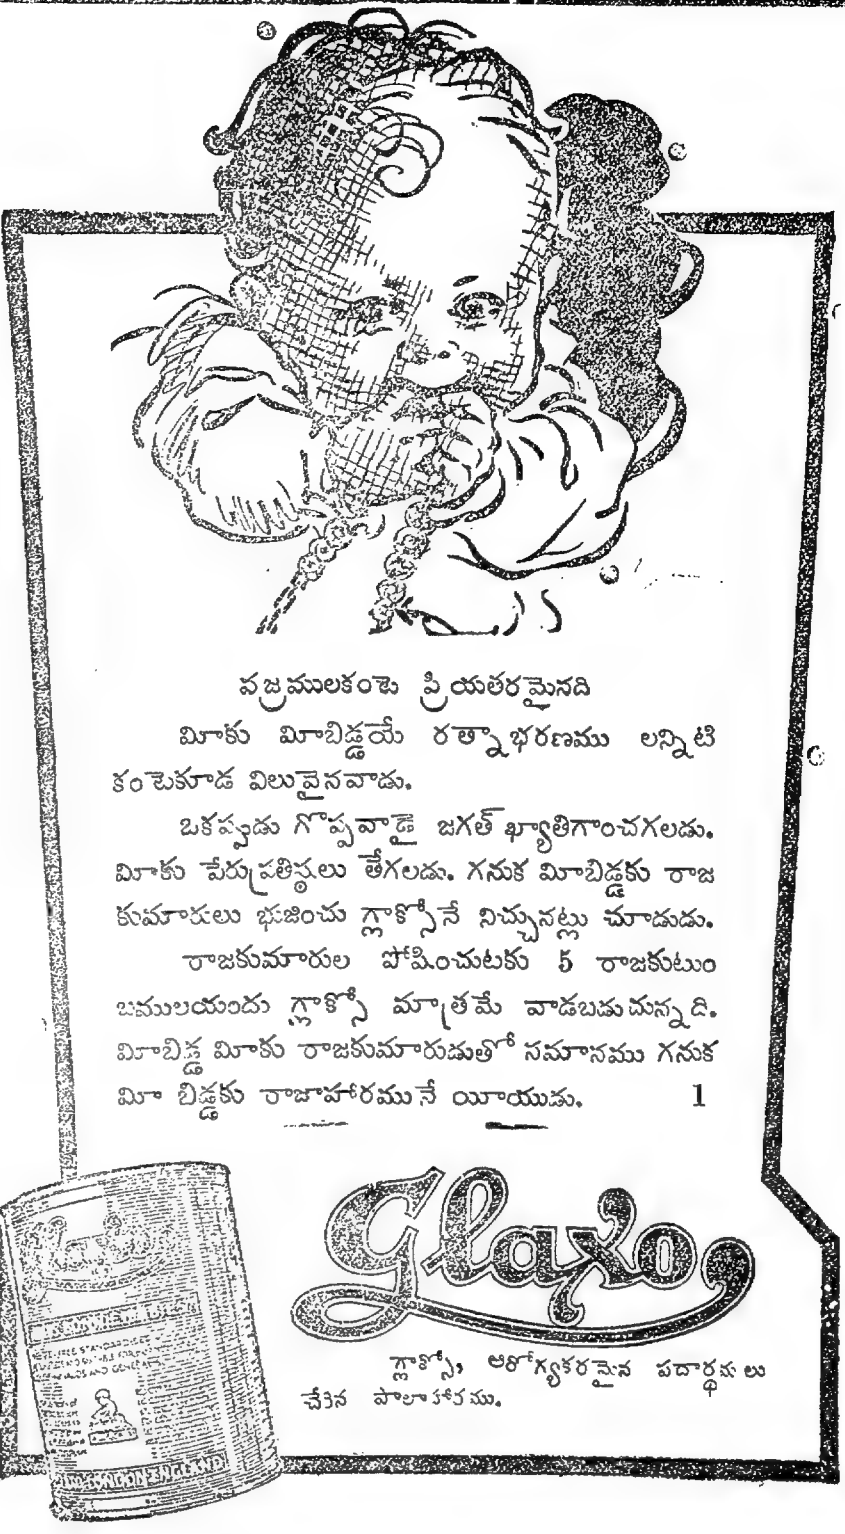 వజ్రములకంటె ప్రియతరమైనది
మీకు మీబిడ్డయే రత్నాభరణము లన్నిటి
కంటెకూడ విలువైనవాడు.
ఒకప్పుడు గొప్పవాడై జగత్ ఖ్యాతిగాంచగలడు.
మీకు పేరుప్రతిష్ఠలు తేగలడు. గనుక మీబిడ్డకు రాజ
కుమారులు భుజించు గ్లాక్సోనే నిచ్చునట్లు చూడుడు.
రాజకుమారుల పోషించుటకు 5 రాజకుటుం
బములయందు గ్లాక్సో మాత్రమే వాడబడుచున్నది.
మీబిడ్డ మీకు రాజకుమారుడుతో సమానము గనుక
మీ బిడ్డకు రాజాహారమునే యీయుడు. 1
Glaxo
గ్లాక్సో, ఆరోగ్యకరమైన పదార్థములు
చేరిన పాలాహారము.
LONDON ENGLAND